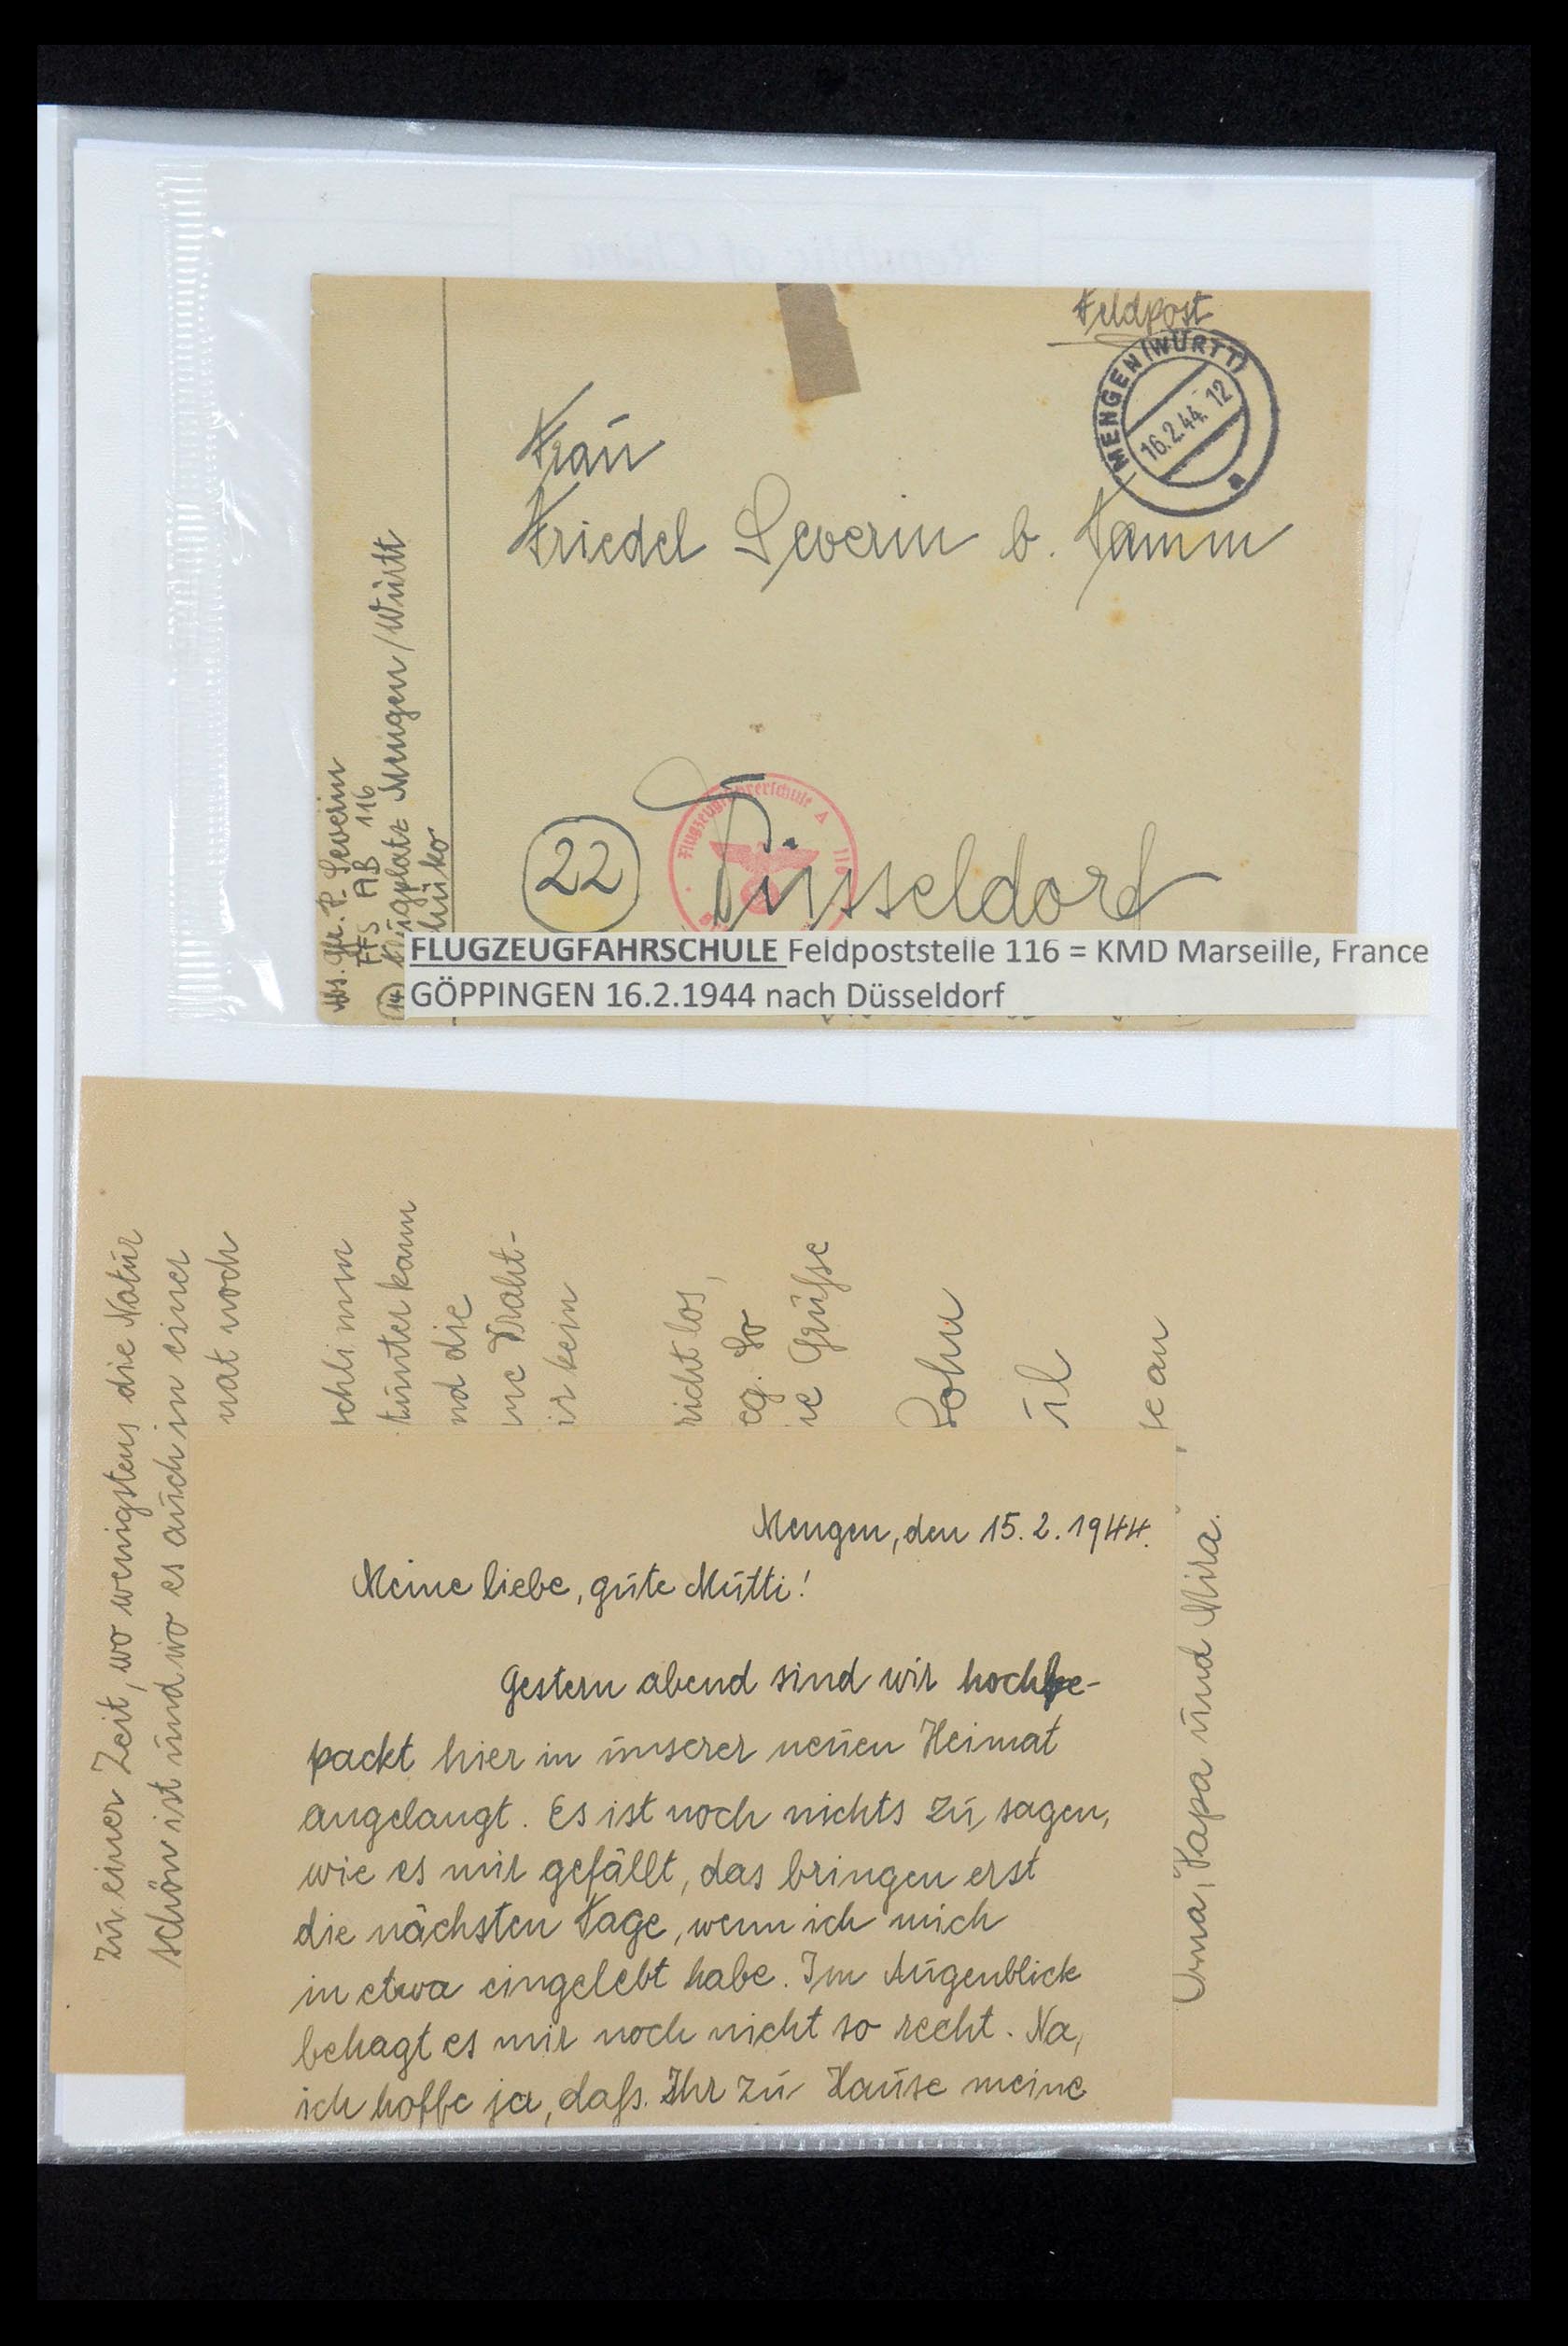 Feldpost
MENGEN (WÜRTT)
16.2.44.12
Frau
Friedel Severin b. Tamm
22
Düsseldorf
Flugzeugführerschule A 116
Abs. Gfr. P. Severin
FFS AB 116
(14) Flugplatz Mengen/Württ
FLUGZEUGFAHRSCHULE Feldpoststelle 116 = KMD Marseille, France
GÖPPINGEN 16.2.1944 nach Düsseldorf
zu einer Zeit, wo wenigstens die Natur
schön ist und wo es auch in einer
nat noch
schlimm
tunter kann
nd die
ne Draht-
ir kein
richt los,
eg. So
ie Grüße
Sohn
il
se an
Oma, Papa und Mira.
Mengen, den 15.2.1944.
Meine liebe, gute Mutti!
Gestern abend sind wir hochbe-
packt hier in unserer neuen Heimat
angelangt. Es ist noch nichts zu sagen,
wie es mir gefällt, das bringen erst
die nächsten Tage, wenn ich mich
in etwa eingelebt habe. Im Augenblick
behagt es mir noch nicht so recht. Na,
ich hoffe ja, daß Ihr zu Hause meine